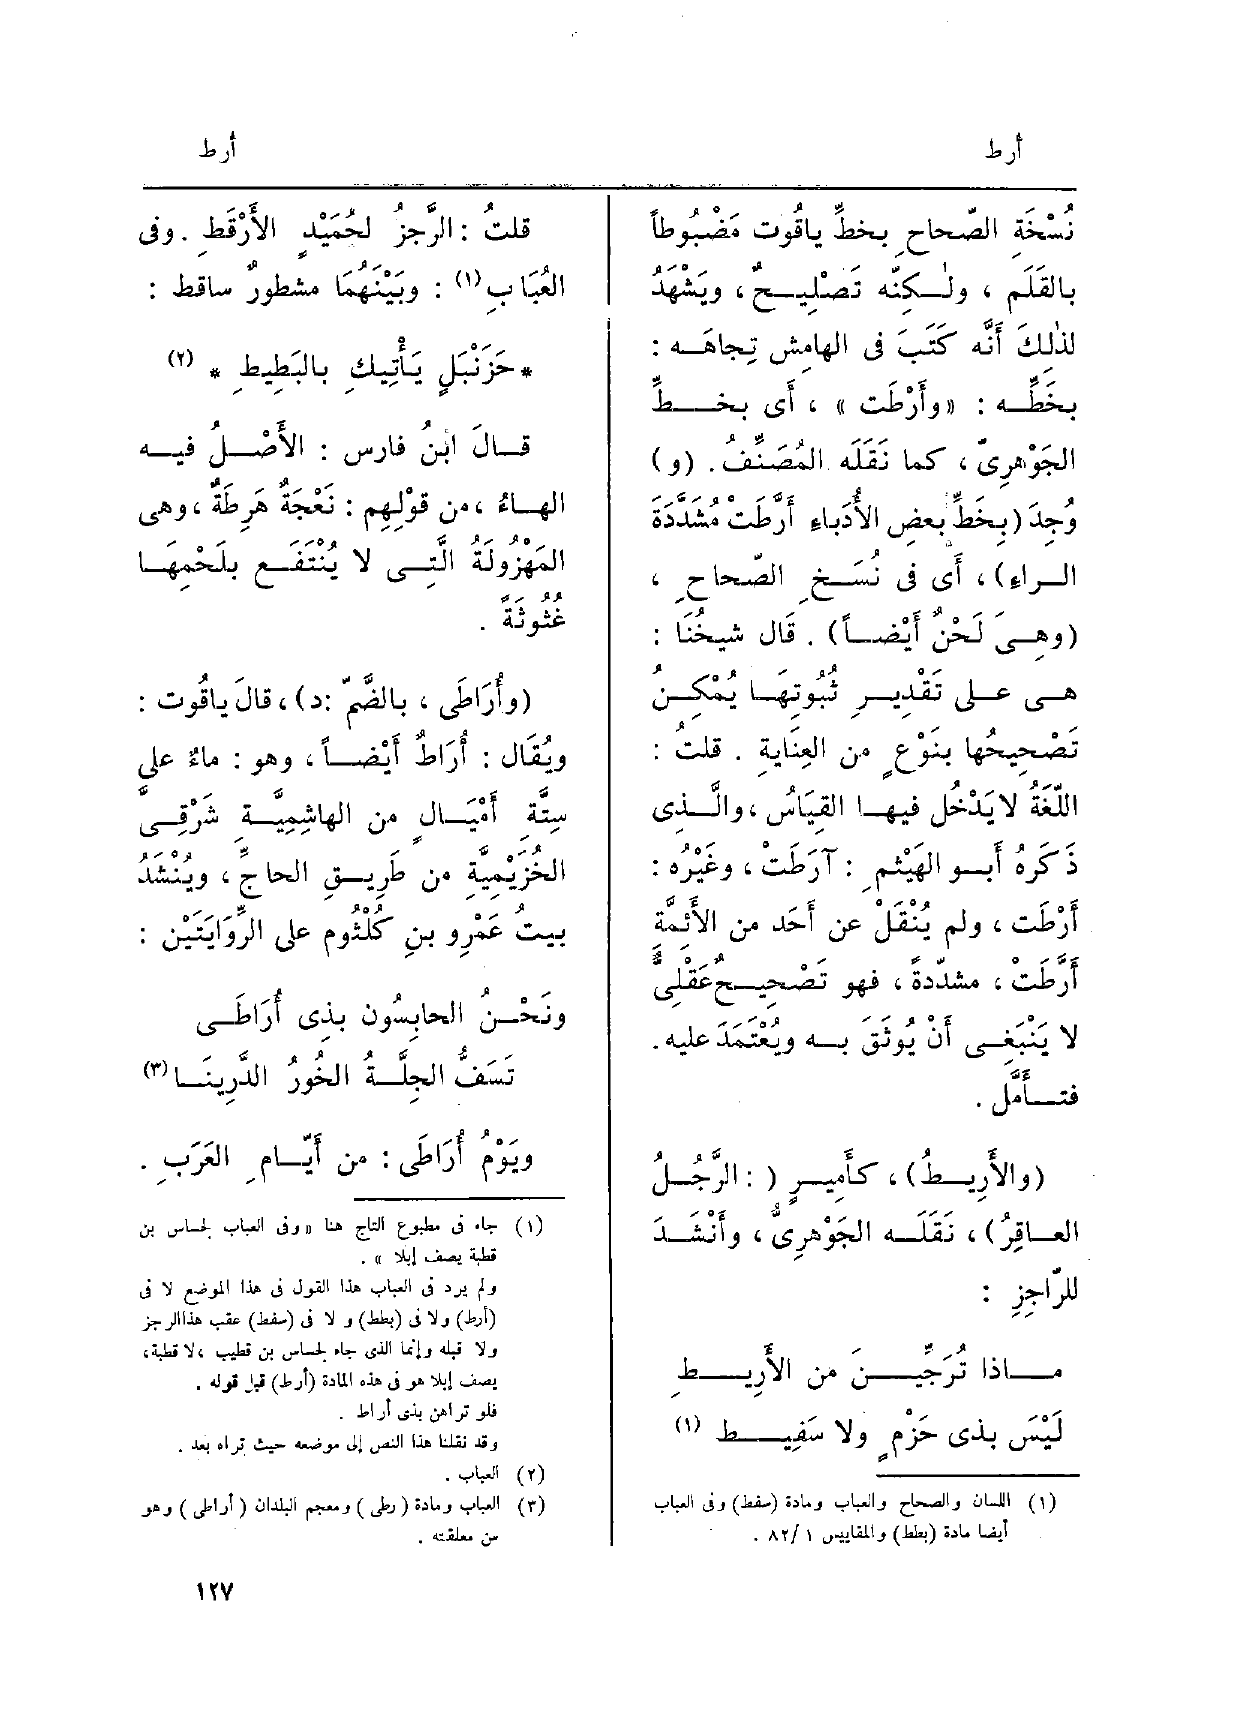 أرط
أرط
نُسْخَةِ الصّحاحِ بخطِّ ياقُوت مَضْبُوطاً
بالقَلَم ، ولٰكِنَّه تَصْلِيحٌ ، ويَشْهَدُ
لذٰلِكَ أَنَّه كَتَبَ فى الهامِش تِجاهَه :
بخَطِّه : «وأَرْطَت» ، أَى بخطِّ
الجَوْهرِىّ ، كما نَقَلَه المُصَنِّفُ . (و)
وُجِدَ (بخَطِّ بعضِ الأُدَباءِ أَرَّطَتْ مُشَدَّدَةَ
الراءِ) ، أَى فى نُسَخِ الصّحاحِ ،
(وهِىَ لَحْنٌ أَيْضاً) . قال شيخُنَا :
هى على تَقْدِيرِ ثُبُوتِهَا يُمْكِنُ
تَصْحِيحُها بنَوْعٍ من العِنَايةِ . قلتُ :
اللّغَةُ لايَدْخُل فيها القِيَاسُ ، والَّذِى
ذَكَرَهُ أَبو الهَيْثمِ : آرَطَتْ ، وغَيْرُه :
أَرْطَت ، ولم يُنْقَلْ عن أَحَد من الأَئِمَّة
أَرَّطَتْ ، مشدّدةً ، فهو تَصْحِيحٌ عَقْلِىٌّ
لا يَنْبَغِى أَنْ يُوثَقَ به ويُعْتَمَدَ عليه .
فتأَمَّل .
(والأَرِيطُ) ، كأَمِيرٍ ( : الرَّجُلُ
العاقِرُ) ، نَقَلَه الجَوْهرِىُّ ، وأَنْشَدَ
للرّاجِزِ :
ماذا تُرَجِّينَ من الأَرِيطِ
لَيْسَ بذى حَزْمٍ ولا سَفِيطِ (١)
(١) اللسان والصحاح والعباب ومادة (سفط) وفى العباب
أيضا مادة (بطط) والمقاييس ١ /٨٢ .
قلتُ : الرَّجزُ لحُمَيْدٍ الأَرْقَطِ . وفى
العُبَابِ (١) : وبَيْنَهُمَا مشطورٌ ساقط :
* حَزَنْبَلٍ يَأْتِيكِ بالبَطِيطِ * (٢)
قالَ ابنُ فارس : الأَصْلُ فيه
الهاءُ ، من قوْلِهم : نَعْجَةٌ هَرِطَةٌ ، وهى
المَهْزُولَةُ الَّتِى لا يُنْتَفَع بلَحْمِهَا
غُثُوثَةً .
(وأُرَاطَى ، بالضَّمّ :د) ، قالَ ياقُوت :
ويُقَال : أُرَاطٌ أَيْضاً ، وهو : ماءٌ على
سِتَّةِ أَمْيَالٍ من الهاشِمِيَّة شَرْقِىَّ
الخُزَيْمِيَّةِ من طَرِيقِ الحاجِّ ، ويُنْشَدُ
بيتُ عَمْرِو بنِ كُلْثُوم على الرِّوَايَتَيْن :
ونَحْنُ الحابِسُون بذِى أُرَاطَى
تَسَفُّ الجِلَّةُ الخُورُ الدَّرِينَا (٣)
ويَوْمُ أُرَاطَى : من أَيّامِ العَرَبِ .
(١) جاء فى مطبوع التاج هنا « وفى العباب لحساس بن
قطبة يصف إبلا » .
ولم يرد فى العباب هذا القول فى هذا الموضع لا فى
(أرط) ولا فى (بطط) و لا فى (سفط) عقب هذا الرجز
ولا قبله وإنما الذى جاء لحساس بن قطيب ، لا قطبة ،
يصف إبلا هو فى هذه المادة (أرط) قبل قوله .
فلو تراهن بذى أراط .
وقد نقلنا هذا النص إلى موضعه حيث تراه بعد .
(٢) العباب .
(٣) العباب ومادة ( رطى ) ومعجم البلدان ( أراطى ) وهو
من معلقته .
١٢٧